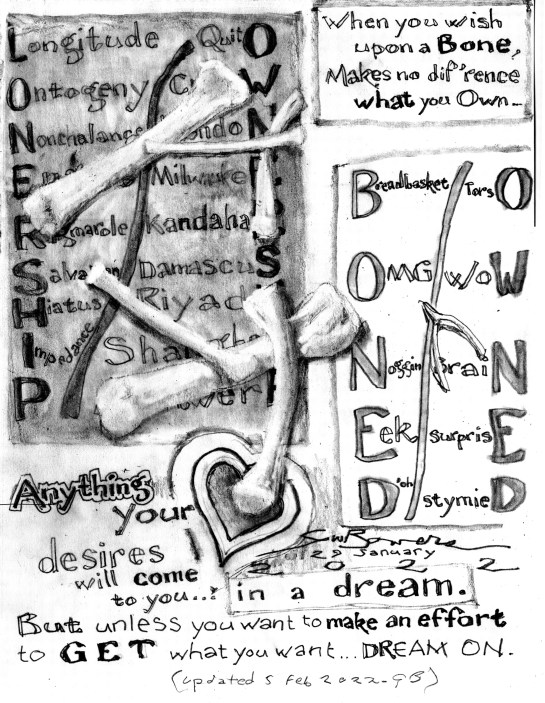 Longitude Quit O
Ontogeny W
Nonchalance
E Milwaukee
R Kandaha
Salvation Damascu S
Hiatus Riyad
Impedance Sha
P
When you wish
upon a Bone,
Makes no diff'rence
what you Own...
Breadbasket Tors O
OMG WoW W
Noggin Brai N
Eek surpris E
D'oh stymie D
Anything
your
desires
will come
to you...:
in a dream.
29 January
2022
But unless you want to make an effort
to GET what you want... DREAM ON.
(updated 5 Feb 2022-GB)